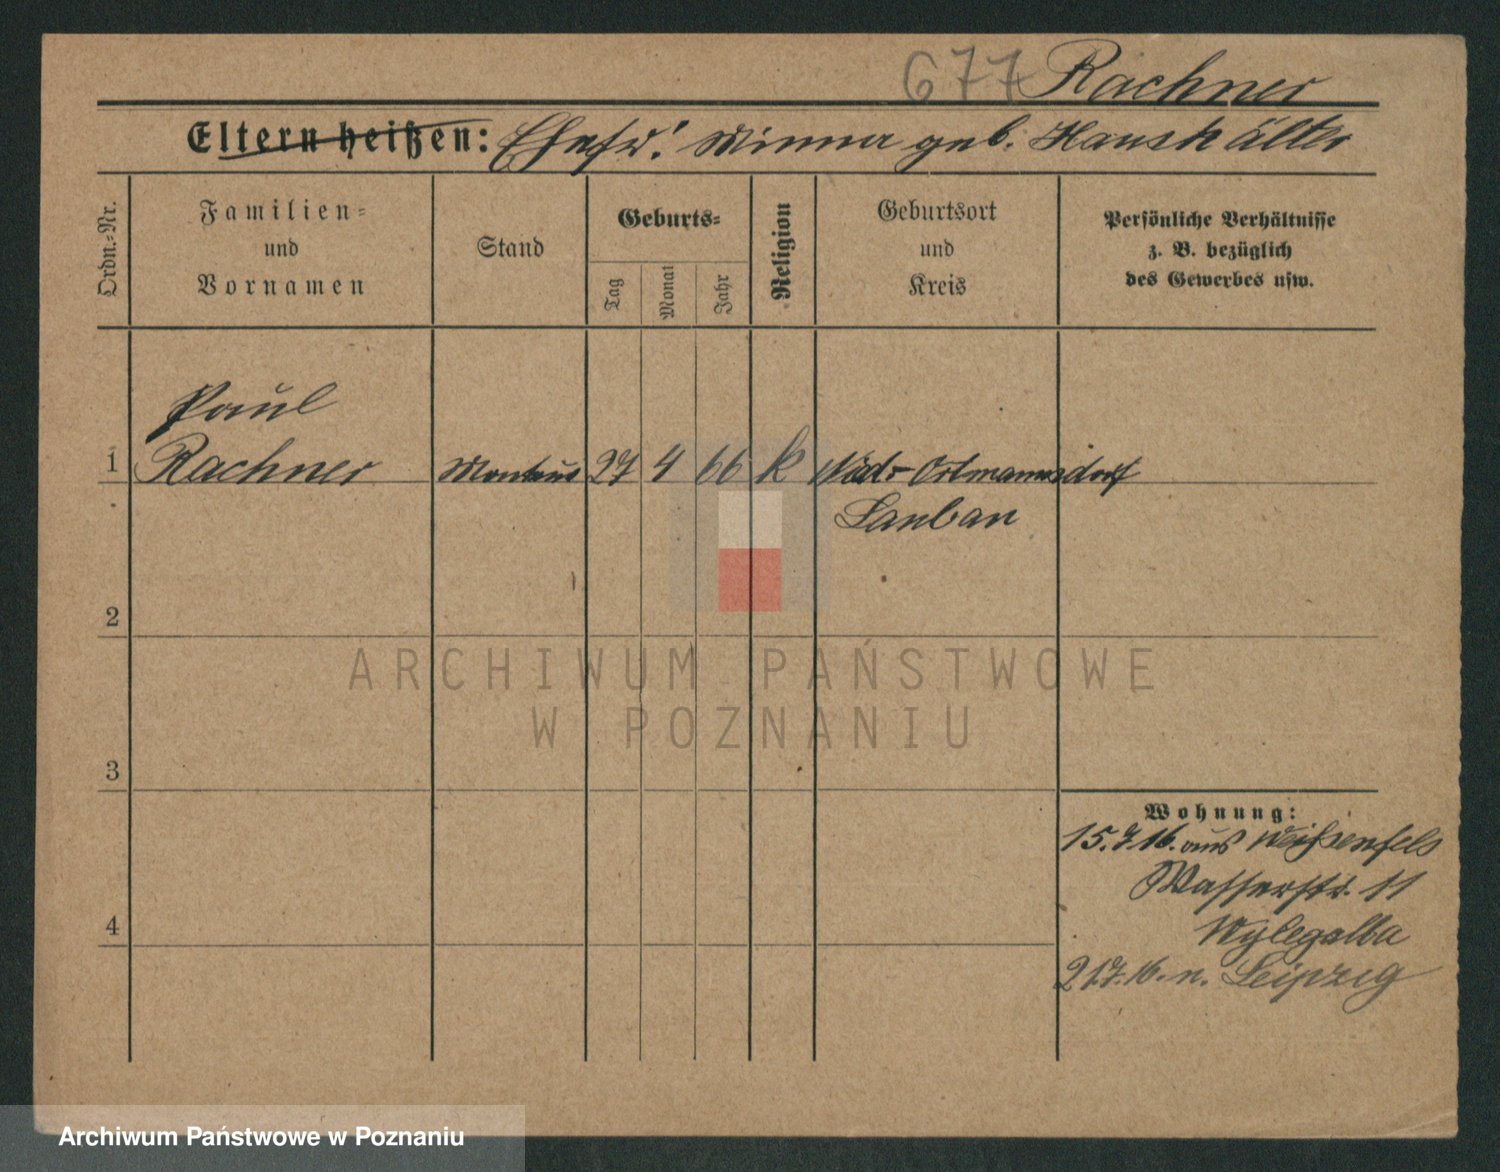 677 Rachner
Eltern heißen: Ehefr: Minna geb. Haushälter
Ordn.-Nr.
Familien-
und
Vornamen
Stand
Geburts-
Tag
Monat
Jahr
Religion
Geburtsort
und
Kreis
Persönliche Verhältnisse
z. B. bezüglich
des Gewerbes usw.
Paul
1 Rachner Monteur 27 4 66 k Nied.-Ortmannsdorf
Lauban
2
ARCHIWUM PAŃSTWOWE
W POZNANIU
3
Wohnung:
15.7.16. aus Weißenfels
Wasserstr. 11
4
Wylegalba
21.7.16. n. Leipzig
Archiwum Państwowe w Poznaniu